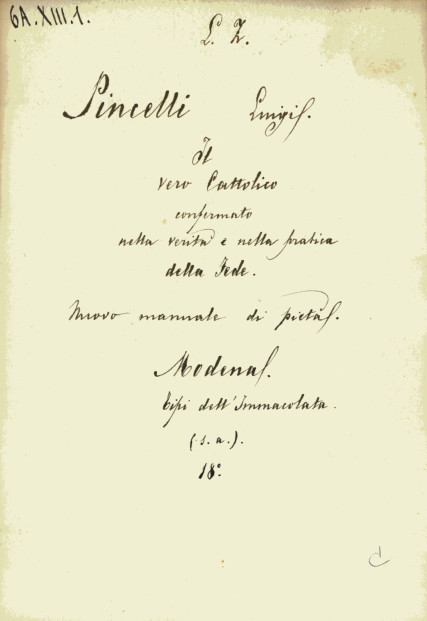 6A.XIII.1.
L. Z.
Pincelli Luigi.
Il
vero Cattolico
confermato
nella verità e nella pratica
della Fede.
Nuovo manuale di pietà.
Modena.
Tipi dell'Immacolata.
(s. a.).
18°.